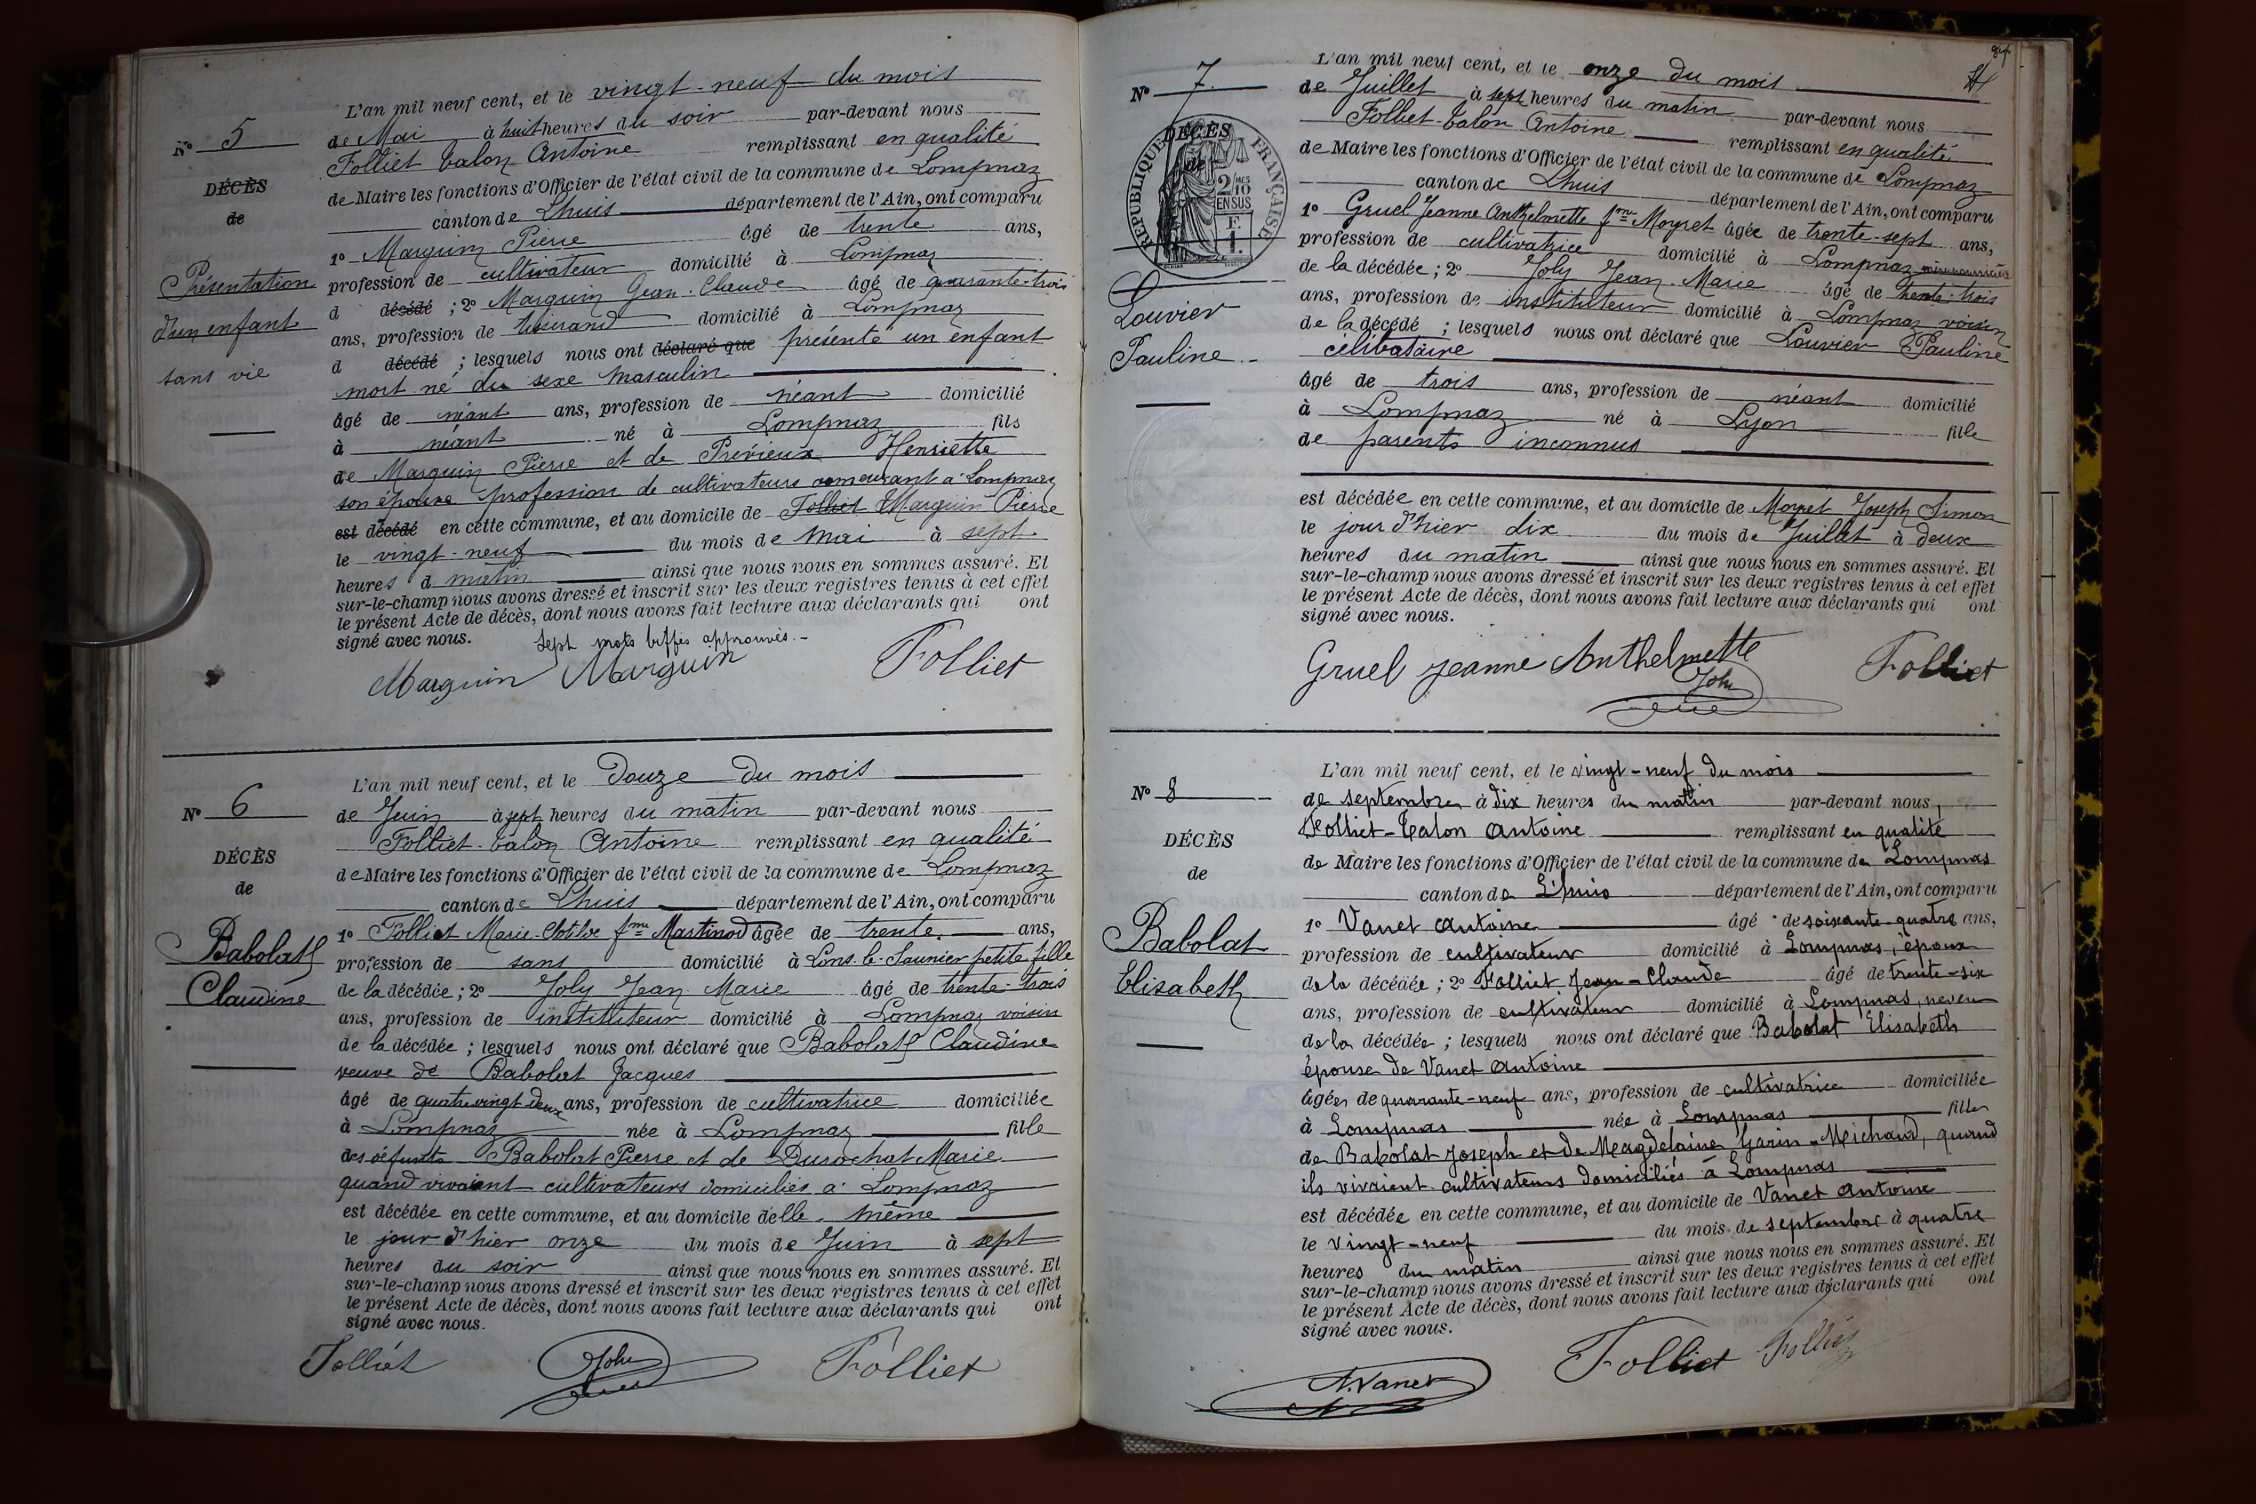 L'an mil neuf cent, et le vingt-neuf du mois
N° 5 de Mai à huit heures du soir par-devant nous
Folliet Talon Antoine remplissant en qualité
DÉCÈS
de
de Maire les fonctions d'Officier de l'état civil de la commune de Lompnaz
canton de Lhuis département de l'Ain, ont comparu
1° Marguin Pierre âgé de trente ans,
Présentation
d'un enfant
sans vie
profession de cultivateur domicilié à Lompnaz
d décédé ; 2° Marguin Jean-Claude âgé de quarante-trois
ans, profession de tisserand domicilié à Lompnaz
d décédé ; lesquels nous ont déclaré que présenté un enfant
mort né du sexe masculin
âgé de néant ans, profession de néant domicilié
à néant né à Lompnaz fils
de Marguin Pierre et de Prévieux Henriette
son épouse profession de cultivateurs demeurant à Lompnaz
est décédé en cette commune, et au domicile de Folliet Marguin Pierre
le vingt-neuf du mois de Mai à sept
heures d matin ainsi que nous nous en sommes assuré. Et
sur-le-champ nous avons dressé et inscrit sur les deux registres tenus à cet effet
le présent Acte de décès, dont nous avons fait lecture aux déclarants qui ont
signé avec nous. Sept mots biffés approuvés.-
Marguin Marguin Folliet
L'an mil neuf cent, et le Douze du mois
N° 6 de Juin à sept heures du matin par-devant nous
Folliet-Talon Antoine remplissant en qualité
DÉCÈS
de
de Maire les fonctions d'Officier de l'état civil de la commune de Lompnaz
canton de Lhuis département de l'Ain, ont comparu
Babolat
Claudine
1° Folliet Marie-Clotilde fme Martinod âgée de trente ans,
profession de sans domicilié à Lons-le-Saunier petite fille
de la décédée ; 2° Joly Jean Marie âgé de trente-trois
ans, profession de instituteur domicilié à Lompnaz voisin
de la décédée ; lesquels nous ont déclaré que Babolat Claudine
veuve de Babolat Jacques
âgé de quatre vingt deux ans, profession de cultivatrice domiciliée
à Lompnaz née à Lompnaz fille
des défunts Babolat Pierre et de Durochat Marie
quand vivaient cultivateurs domiciliés à Lompnaz
est décédée en cette commune, et au domicile d'elle-même
le jour d'hier onze du mois de Juin à sept
heures du soir ainsi que nous nous en sommes assuré. Et
sur-le-champ nous avons dressé et inscrit sur les deux registres tenus à cet effet
le présent Acte de décès, dont nous avons fait lecture aux déclarants qui ont
signé avec nous.
Folliet Joly Folliet
L'an mil neuf cent, et le onze du mois
N° 7 de Juillet à sept heures du matin par-devant nous
Folliet-Talon Antoine remplissant en qualité
DÉCÈS
de
RÉPUBLIQUE FRANÇAISE
2/10 EN SUS
F. 1.
de Maire les fonctions d'Officier de l'état civil de la commune de Lompnaz
canton de Lhuis département de l'Ain, ont comparu
1° Gruel Jeanne Anthelmette fme Moyret âgée de trente-sept ans,
profession de cultivatrice domicilié à Lompnaz
de la décédée ; 2° Joly Jean-Marie âgé de trente-trois
Louvier
Pauline
ans, profession de instituteur domicilié à Lompnaz voisin
de la décédé ; lesquels nous ont déclaré que Louvier Pauline
célibataire
âgé de trois ans, profession de néant domicilié
à Lompnaz né à Lyon fille
de parents inconnus
est décédée en cette commune, et au domicile de Moyret Joseph Simon
le jour d'hier dix du mois de Juillet à deux
heures du matin ainsi que nous nous en sommes assuré. Et
sur-le-champ nous avons dressé et inscrit sur les deux registres tenus à cet effet
le présent Acte de décès, dont nous avons fait lecture aux déclarants qui ont
signé avec nous.
Gruel Jeanne Anthelmette Joly Folliet
L'an mil neuf cent, et le vingt-neuf du mois
N° 8 de septembre à dix heures du matin par-devant nous,
Folliet-Talon Antoine remplissant en qualité
DÉCÈS
de
de Maire les fonctions d'Officier de l'état civil de la commune de Lompnas
canton de Lhuis département de l'Ain, ont comparu
Babolat
Elisabeth
1° Vanet Antoine âgé de soixante-quatre ans,
profession de cultivateur domicilié à Lompnas, époux
de la décédée ; 2° Folliet Jean-Claude âgé de trente-six
ans, profession de cultivateur domicilié à Lompnas, neveu
de la décédée ; lesquels nous ont déclaré que Babolat Elisabeth
épouse de Vanet Antoine
âgée de quarante-neuf ans, profession de cultivatrice domiciliée
à Lompnas née à Lompnas fille
de Babolat Joseph et de Magdelaine Garin-Michaud, quand
ils vivaient cultivateurs domiciliés à Lompnas
est décédée en cette commune, et au domicile de Vanet Antoine
le vingt-neuf du mois de septembre à quatre
heures du matin ainsi que nous nous en sommes assuré. Et
sur-le-champ nous avons dressé et inscrit sur les deux registres tenus à cet effet
le présent Acte de décès, dont nous avons fait lecture aux déclarants qui ont
signé avec nous.
A. Vanet Folliet Folliet